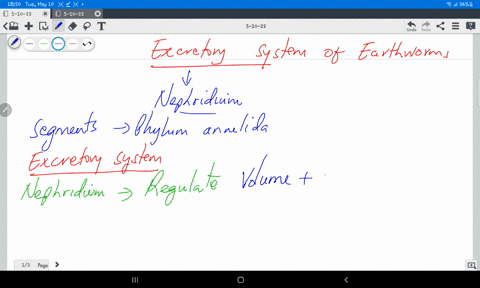 18:50 Tue, May 10
36%
5-10-22
5-10-22
5-10-22
Undo
Redo
Excretory system of Earthworms
↓
Nephridium
Segments → Phylum annelida
Excretory system
Nephridium → Regulate Volume +
1/3 Page >